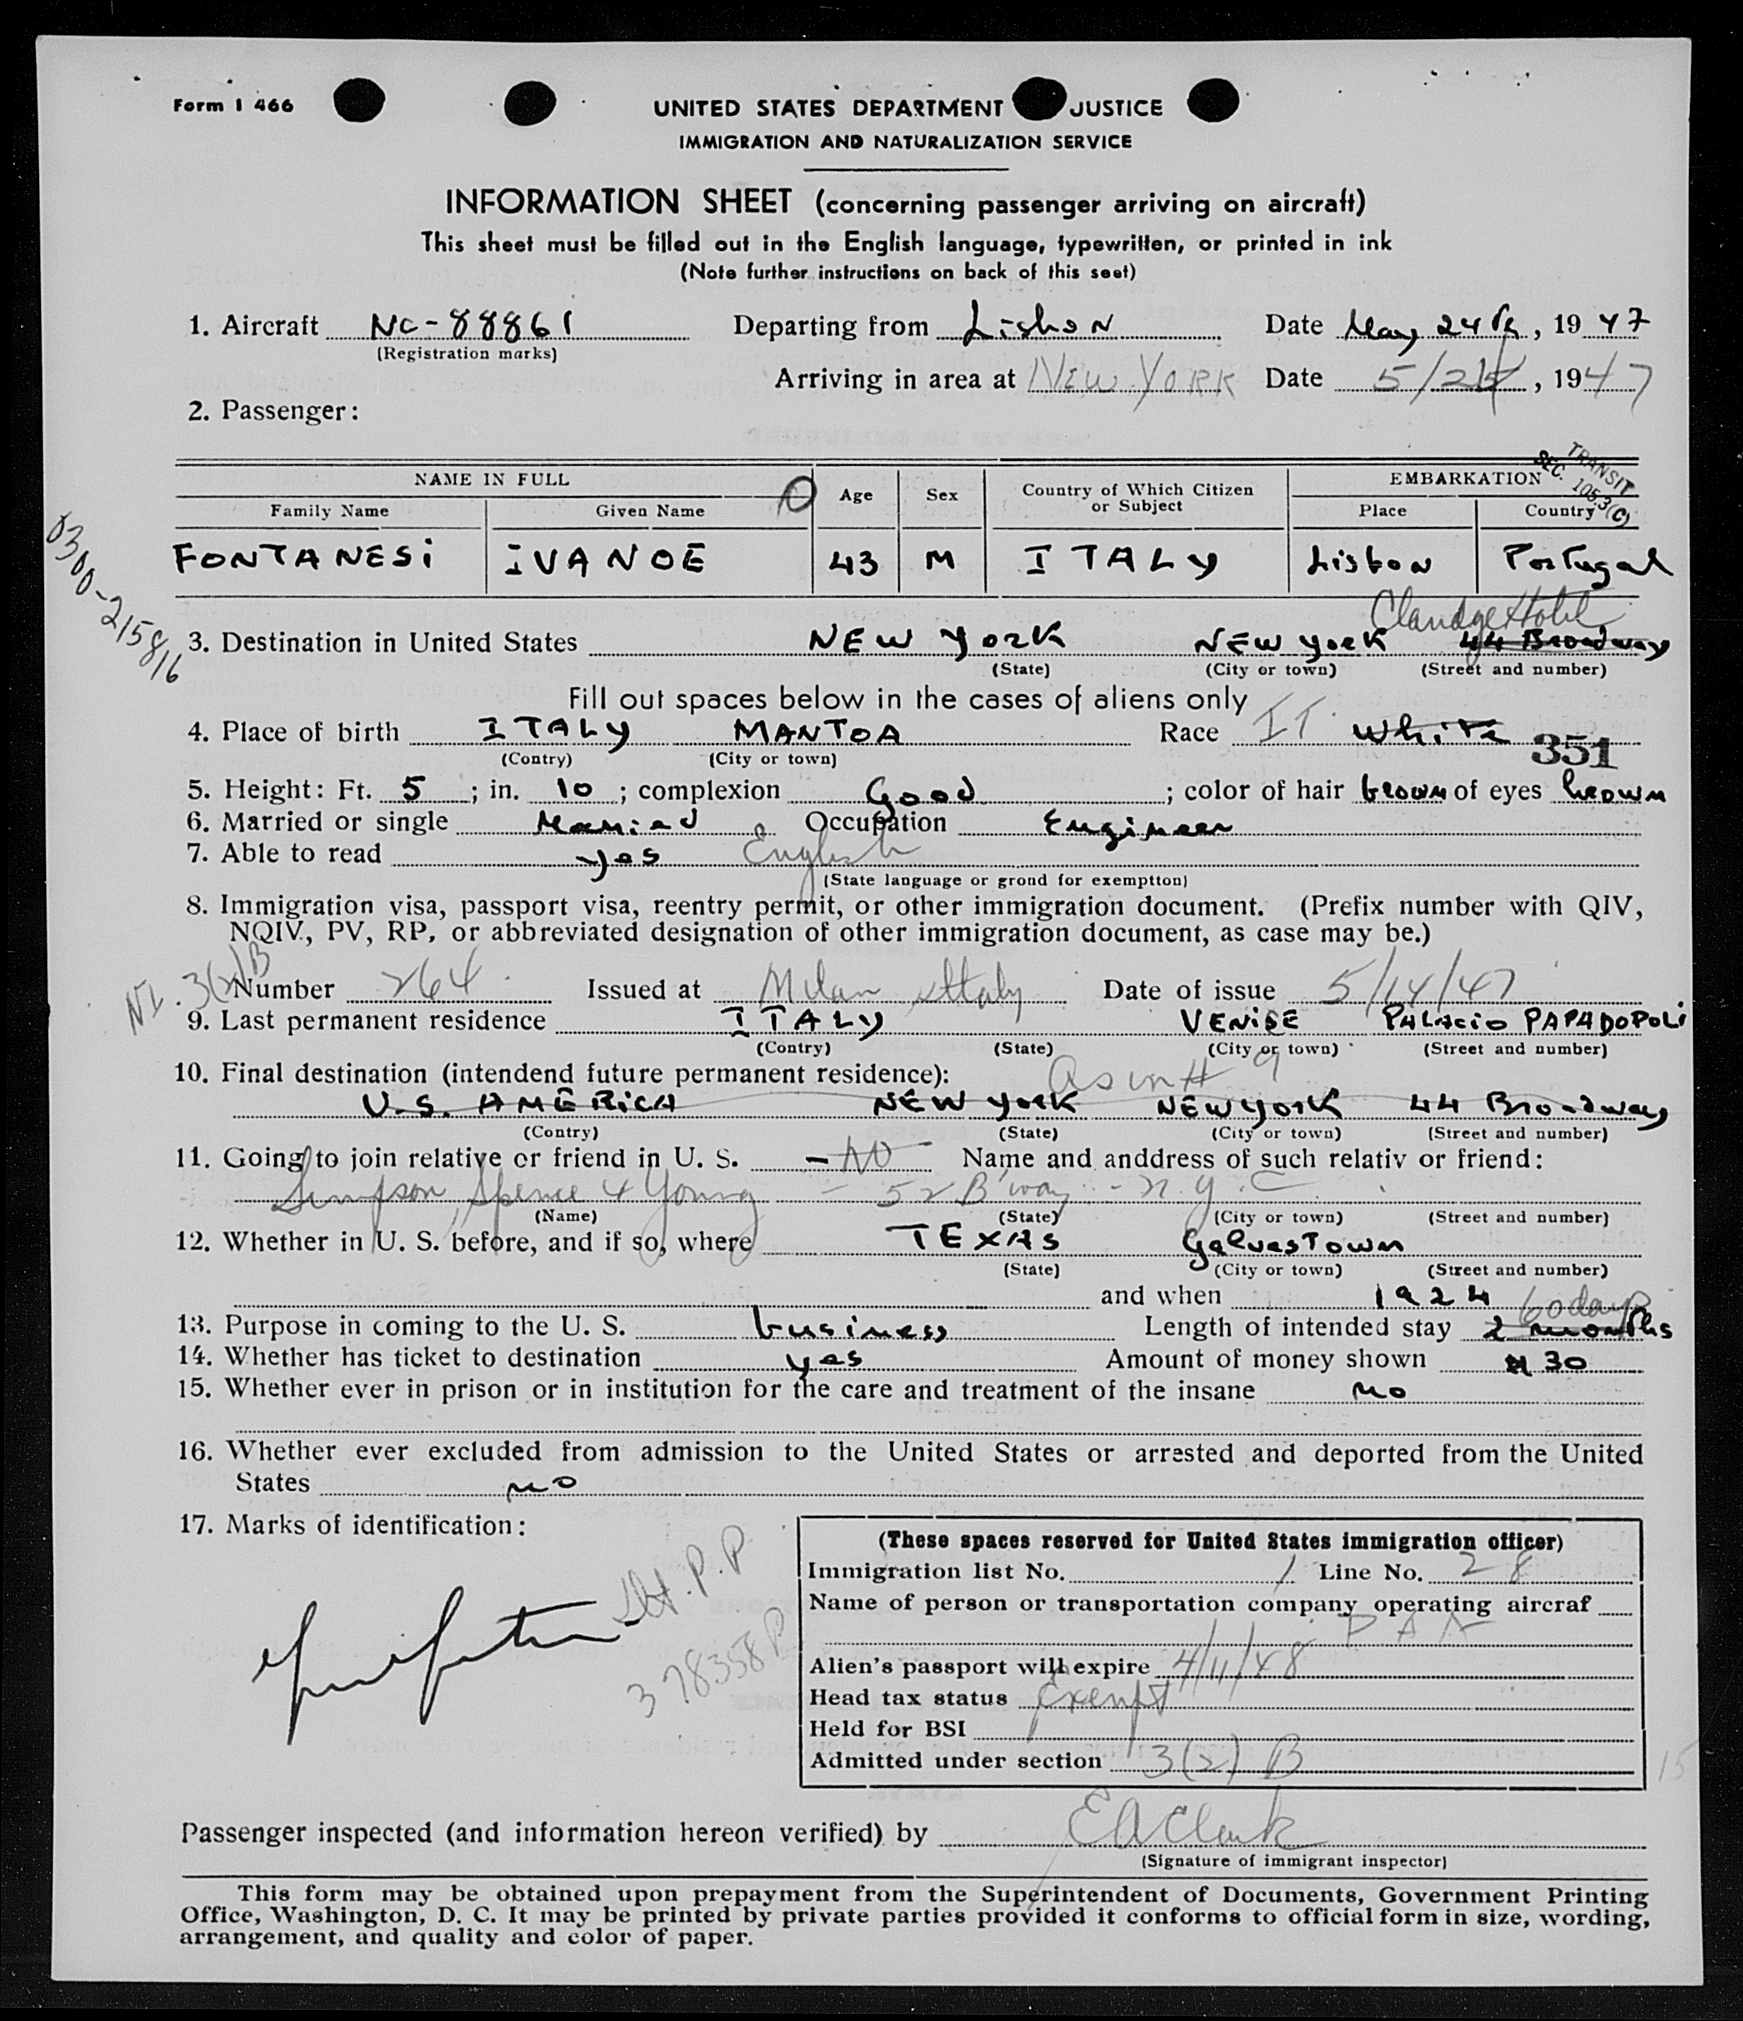 Form I 466
UNITED STATES DEPARTMENT JUSTICE
IMMIGRATION AND NATURALIZATION SERVICE
INFORMATION SHEET (concerning passenger arriving on aircraft)
This sheet must be filled out in the English language, typewritten, or printed in ink
(Note further instructions on back of this seet)
1. Aircraft NC-88861 Departing from Lisbon Date May 24th, 1947
(Registration marks)
Arriving in area at New York Date 5/25, 1947
2. Passenger:
TRANSIT
SEC. 105.3(C)
NAME IN FULL Age Sex Country of Which Citizen or Subject EMBARKATION
Family Name Given Name Place Country
FONTANESi iVANOE 43 M ITALY Lisbon Portugal
0300-215816
Claridge Hotel
3. Destination in United States NEW York NEW York 44 Broadway
(State) (City or town) (Street and number)
Fill out spaces below in the cases of aliens only
4. Place of birth ITALY MANTOA Race IT. White
(Contry) (City or town)
351
5. Height: Ft. 5; in. 10; complexion Good; color of hair brown of eyes brown
6. Married or single Married Occupation Engineer
7. Able to read yes English
(State language or grond for exemptton)
8. Immigration visa, passport visa, reentry permit, or other immigration document. (Prefix number with QIV,
NQIV., PV, RP, or abbreviated designation of other immigration document, as case may be.)
3(2)B
Number 264 Issued at Milan Italy Date of issue 5/14/47
9. Last permanent residence ITALY VENiSE PALAciO PAPADOPOLi
(Contry) (State) (City or town) (Street and number)
10. Final destination (intendend future permanent residence): as in # 9
U.S. AMERiCA NEW York NEW York 44 Broadway
(Contry) (State) (City or town) (Street and number)
11. Going to join relative or friend in U. S. - NO - Name and anddress of such relativ or friend:
Simpson, Spence & Young - 52 B'way - N.Y.C.
(Name) (State) (City or town) (Street and number)
12. Whether in U. S. before, and if so, where TEXAS GalvesTown
(State) (City or town) (Street and number)
and when 1924
60 days
13. Purpose in coming to the U. S. business Length of intended stay 2 months
14. Whether has ticket to destination yes Amount of money shown $ 30
15. Whether ever in prison or in institution for the care and treatment of the insane no
16. Whether ever excluded from admission to the United States or arrested and deported from the United
States no
17. Marks of identification:
P.P
378358P
(These spaces reserved for United States immigration officer)
Immigration list No. 1 Line No. 28
Name of person or transportation company operating aircraf
PAA
Alien's passport will expire 4/11/48
Head tax status Exempt
Held for BSI
Admitted under section 3(2) B
15
Passenger inspected (and information hereon verified) by EA Clark
(Signature of immigrant inspector)
This form may be obtained upon prepayment from the Superintendent of Documents, Government Printing
Office, Washington, D. C. It may be printed by private parties provided it conforms to official form in size, wording,
arrangement, and quality and color of paper.